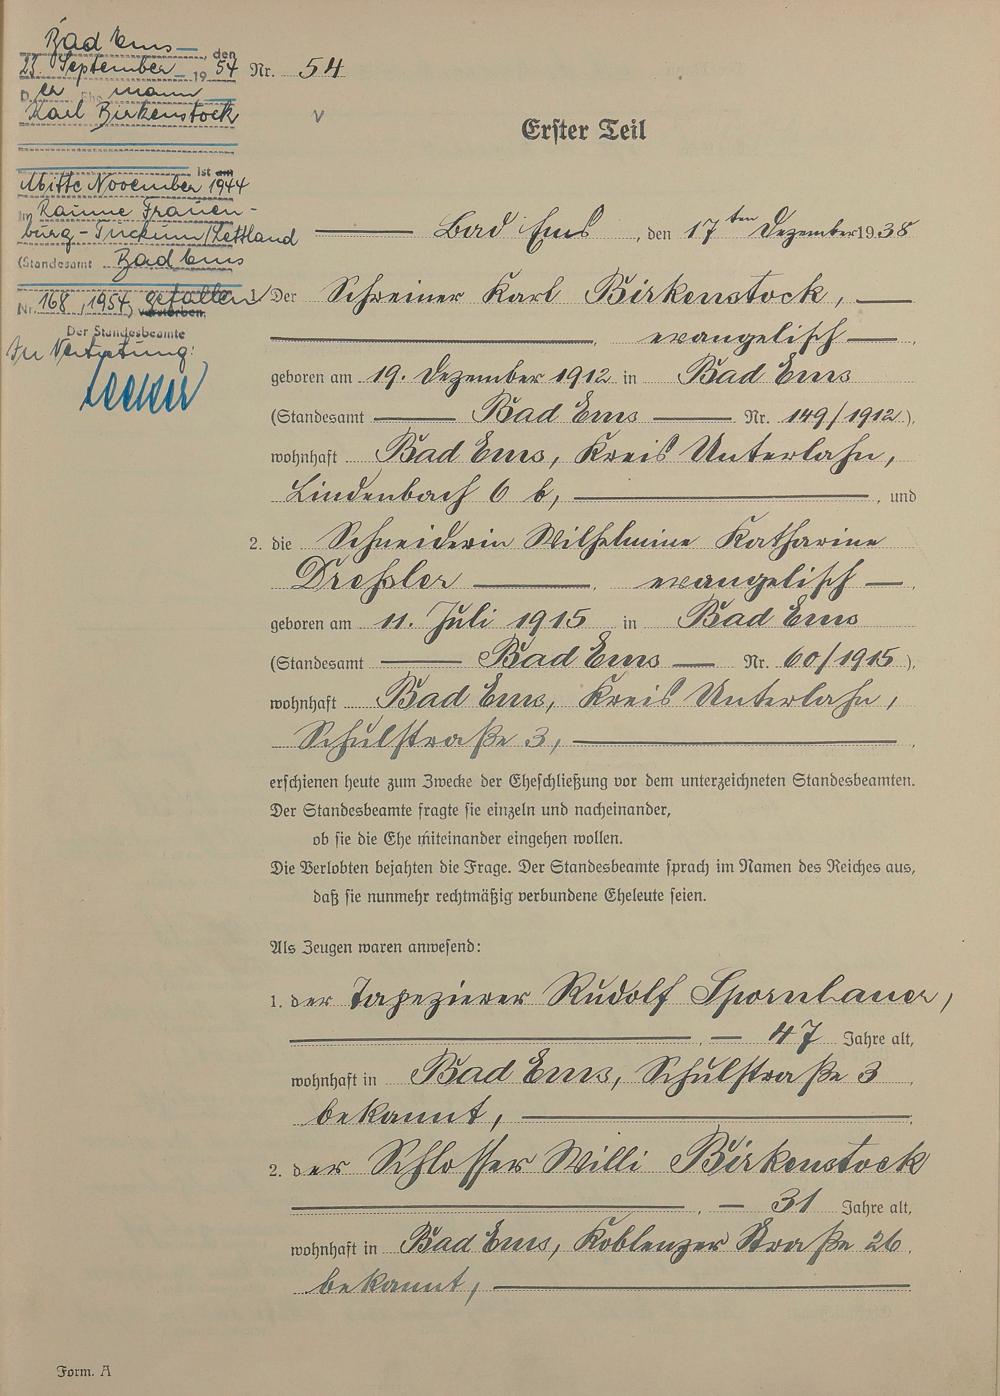 Bad Ems, den
23. September 1954
Der Ehemann
Karl Birkenstock
ist am
Mitte November 1944
im Raume Frauen-
burg-Tuckum/Lettland
(Standesamt Bad Ems
Nr. 168, 1954) gefallen verstorben.
Der Standesbeamte
In Vertretung:
Nr. 54
Erster Teil
Bad Ems, den 17ten Dezember 1938
1. Der Schreiner Karl Birkenstock,
evangelisch
geboren am 19. Dezember 1912 in Bad Ems
(Standesamt Bad Ems Nr. 149/1912),
wohnhaft Bad Ems, Kreis Unterlahn,
Lindenbach 6 b, und
2. die Schneiderin Wilhelmine Katharine
Dreßler, evangelisch,
geboren am 11. Juli 1915 in Bad Ems
(Standesamt Bad Ems Nr. 60/1915),
wohnhaft Bad Ems, Kreis Unterlahn,
Schulstraße 3,
erschienen heute zum Zwecke der Eheschließung vor dem unterzeichneten Standesbeamten.
Der Standesbeamte fragte sie einzeln und nacheinander,
ob sie die Ehe miteinander eingehen wollen.
Die Verlobten bejahten die Frage. Der Standesbeamte sprach im Namen des Reiches aus,
daß sie nunmehr rechtmäßig verbundene Eheleute seien.
Als Zeugen waren anwesend:
1. der Tapezierer Rudolf Spornhauer,
47 Jahre alt,
wohnhaft in Bad Ems, Schulstraße 3
bekannt,
2. der Schlosser Willi Birkenstock
31 Jahre alt,
wohnhaft in Bad Ems, Koblenzer Straße 26.
bekannt,
Form. A